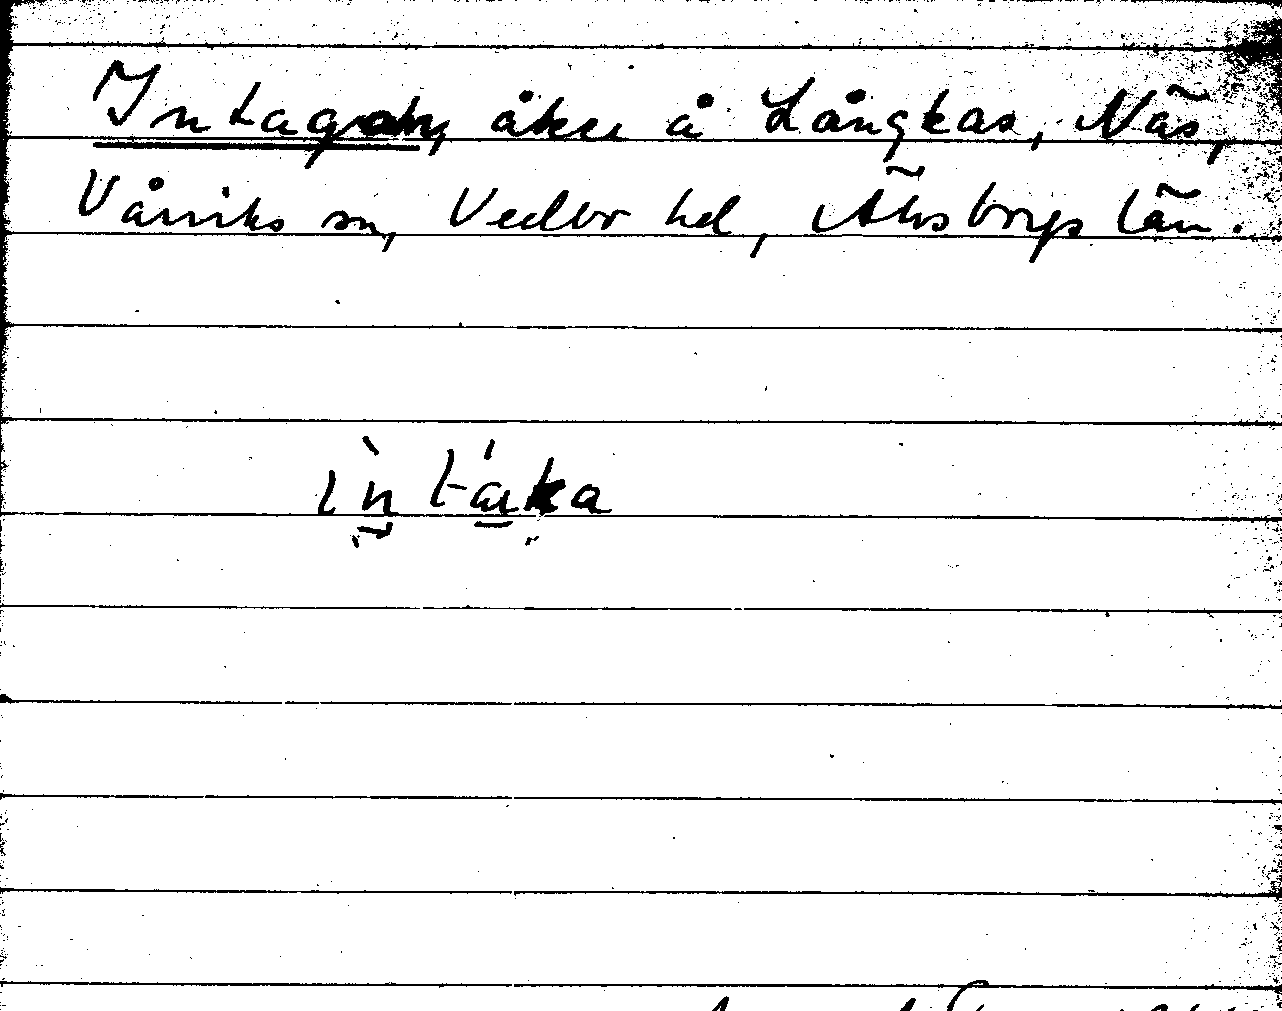 Intagan, åker å Långkas, Näs,
Vårviks sn, Vedbo hd, Älvsborgs län.